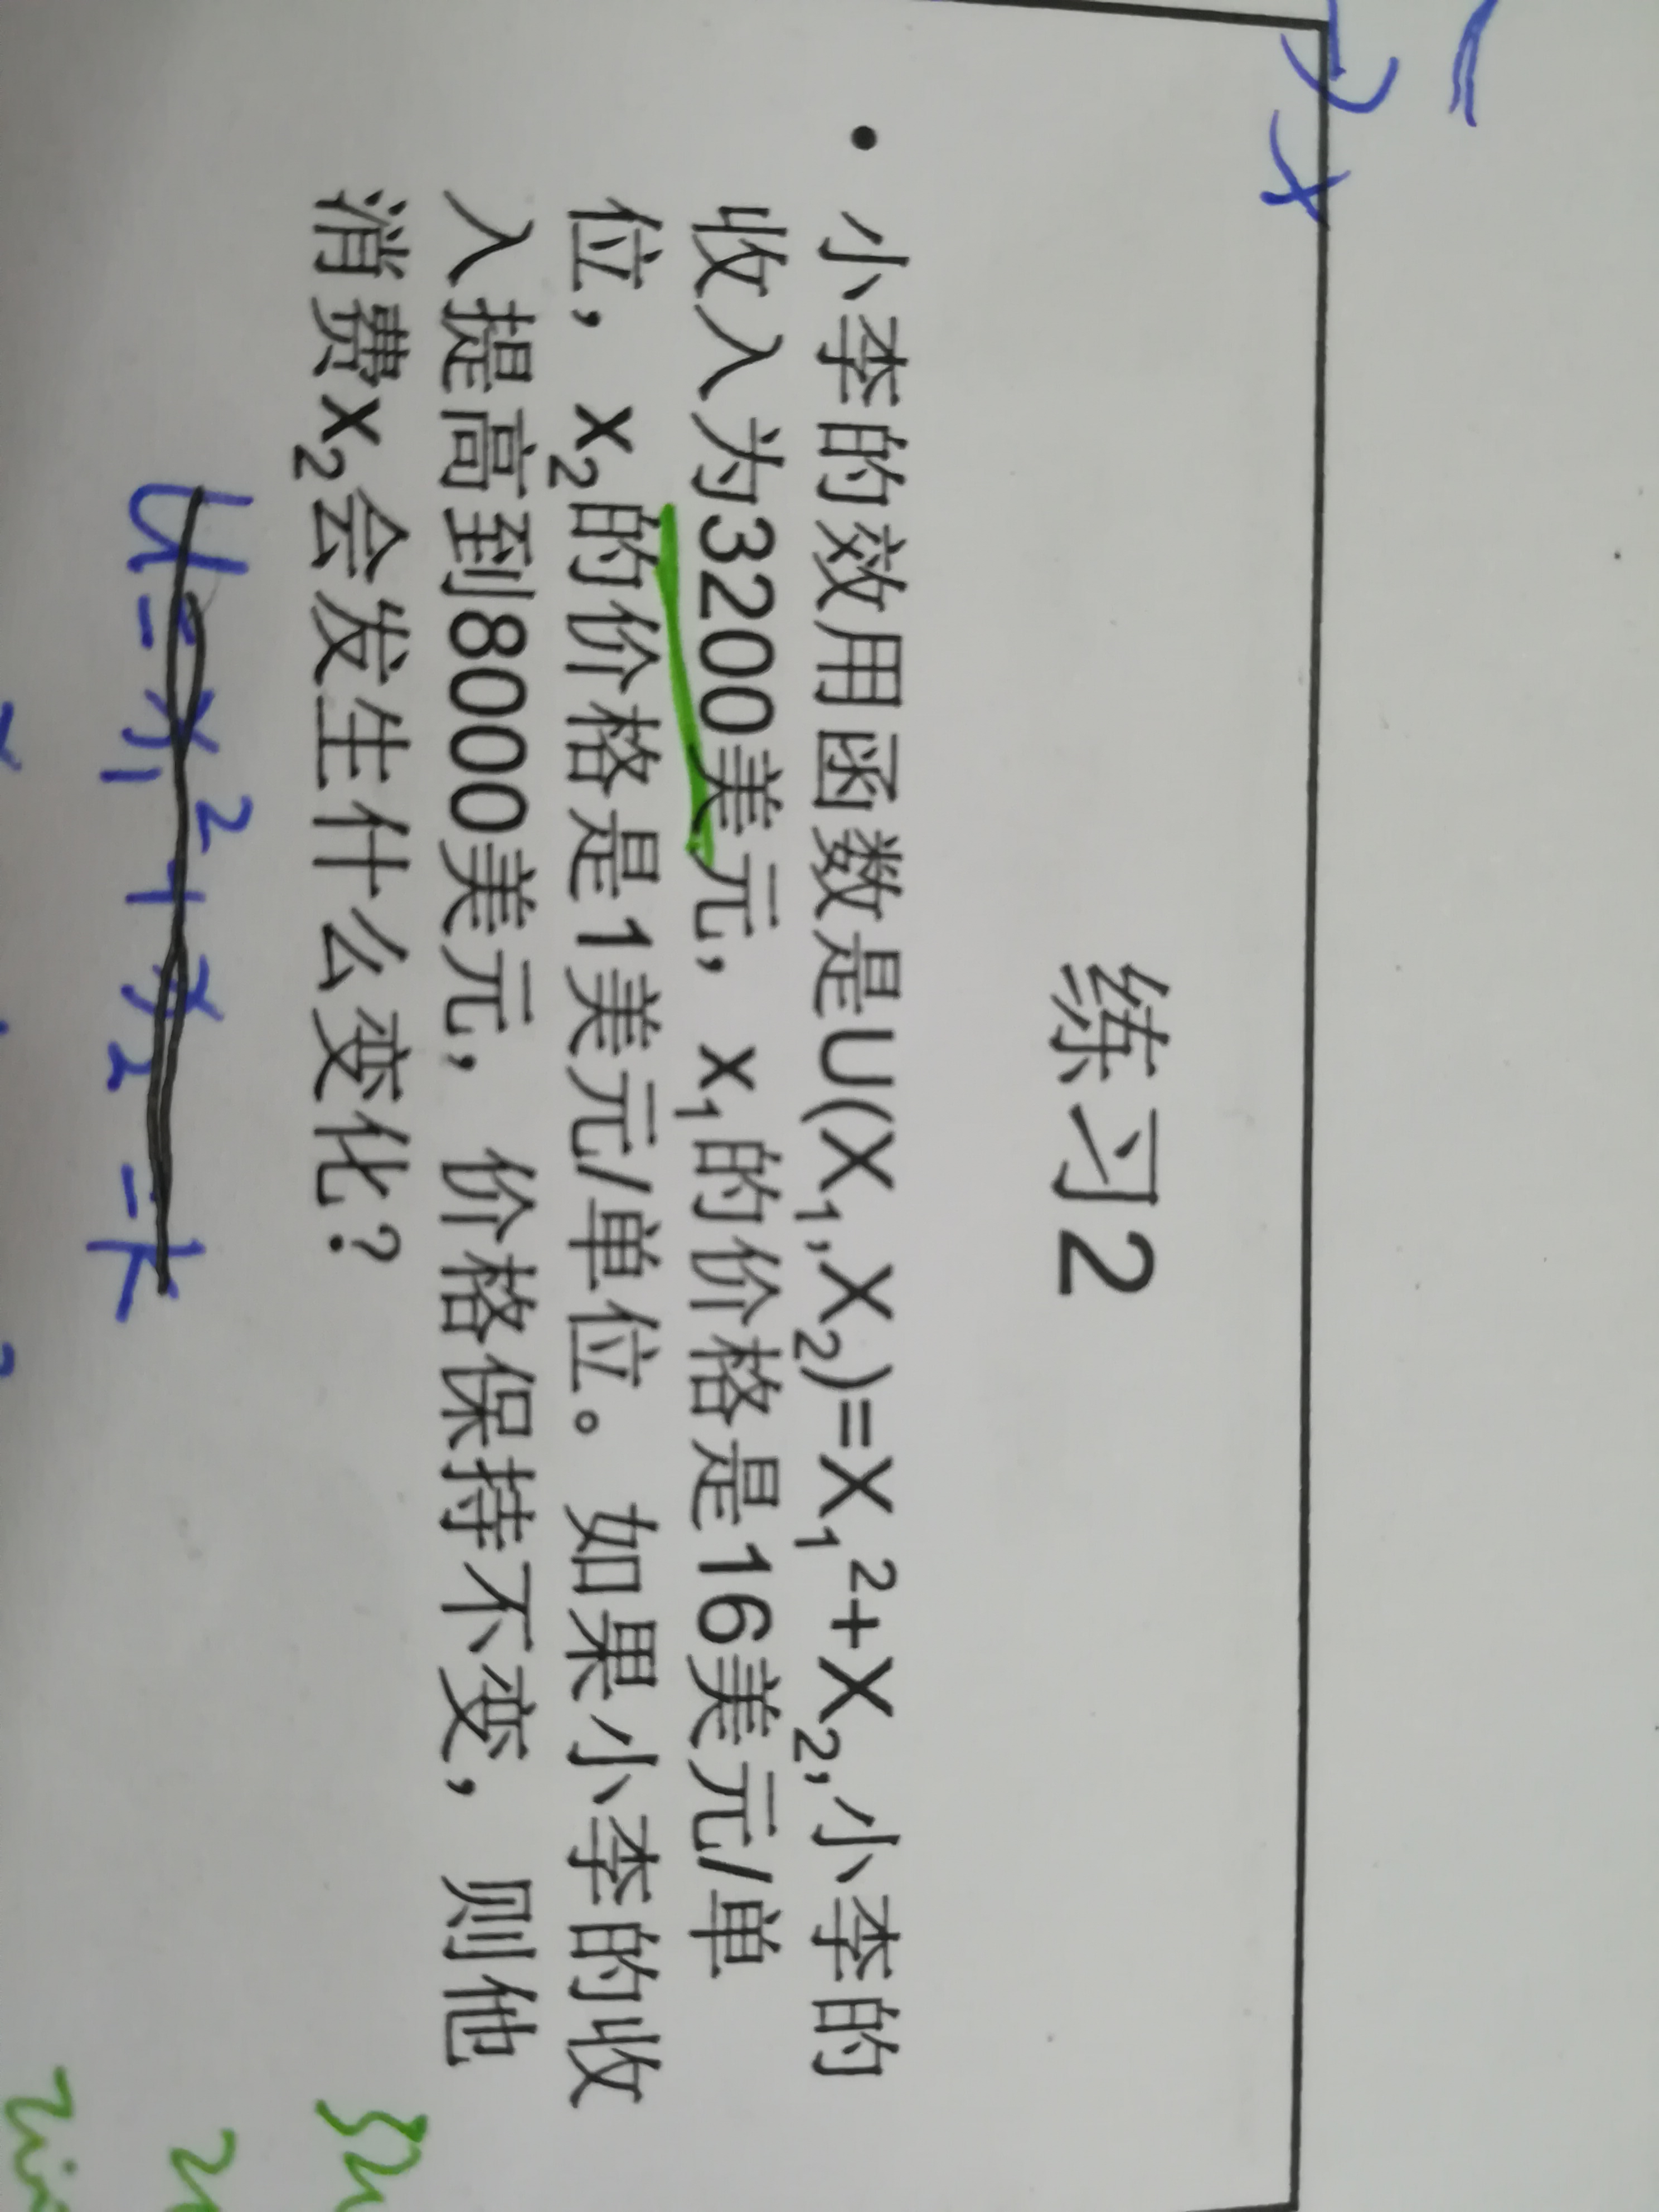 练习2
• 小李的效用函数是U(X₁,X₂)=X₁²+X₂,小李的
收入为3200美元，x₁的价格是16美元/单
位，x₂的价格是1美元/单位。如果小李的收
入提高到8000美元，价格保持不变，则他
消费x₂会发生什么变化？
U=x₁²+x₂=k